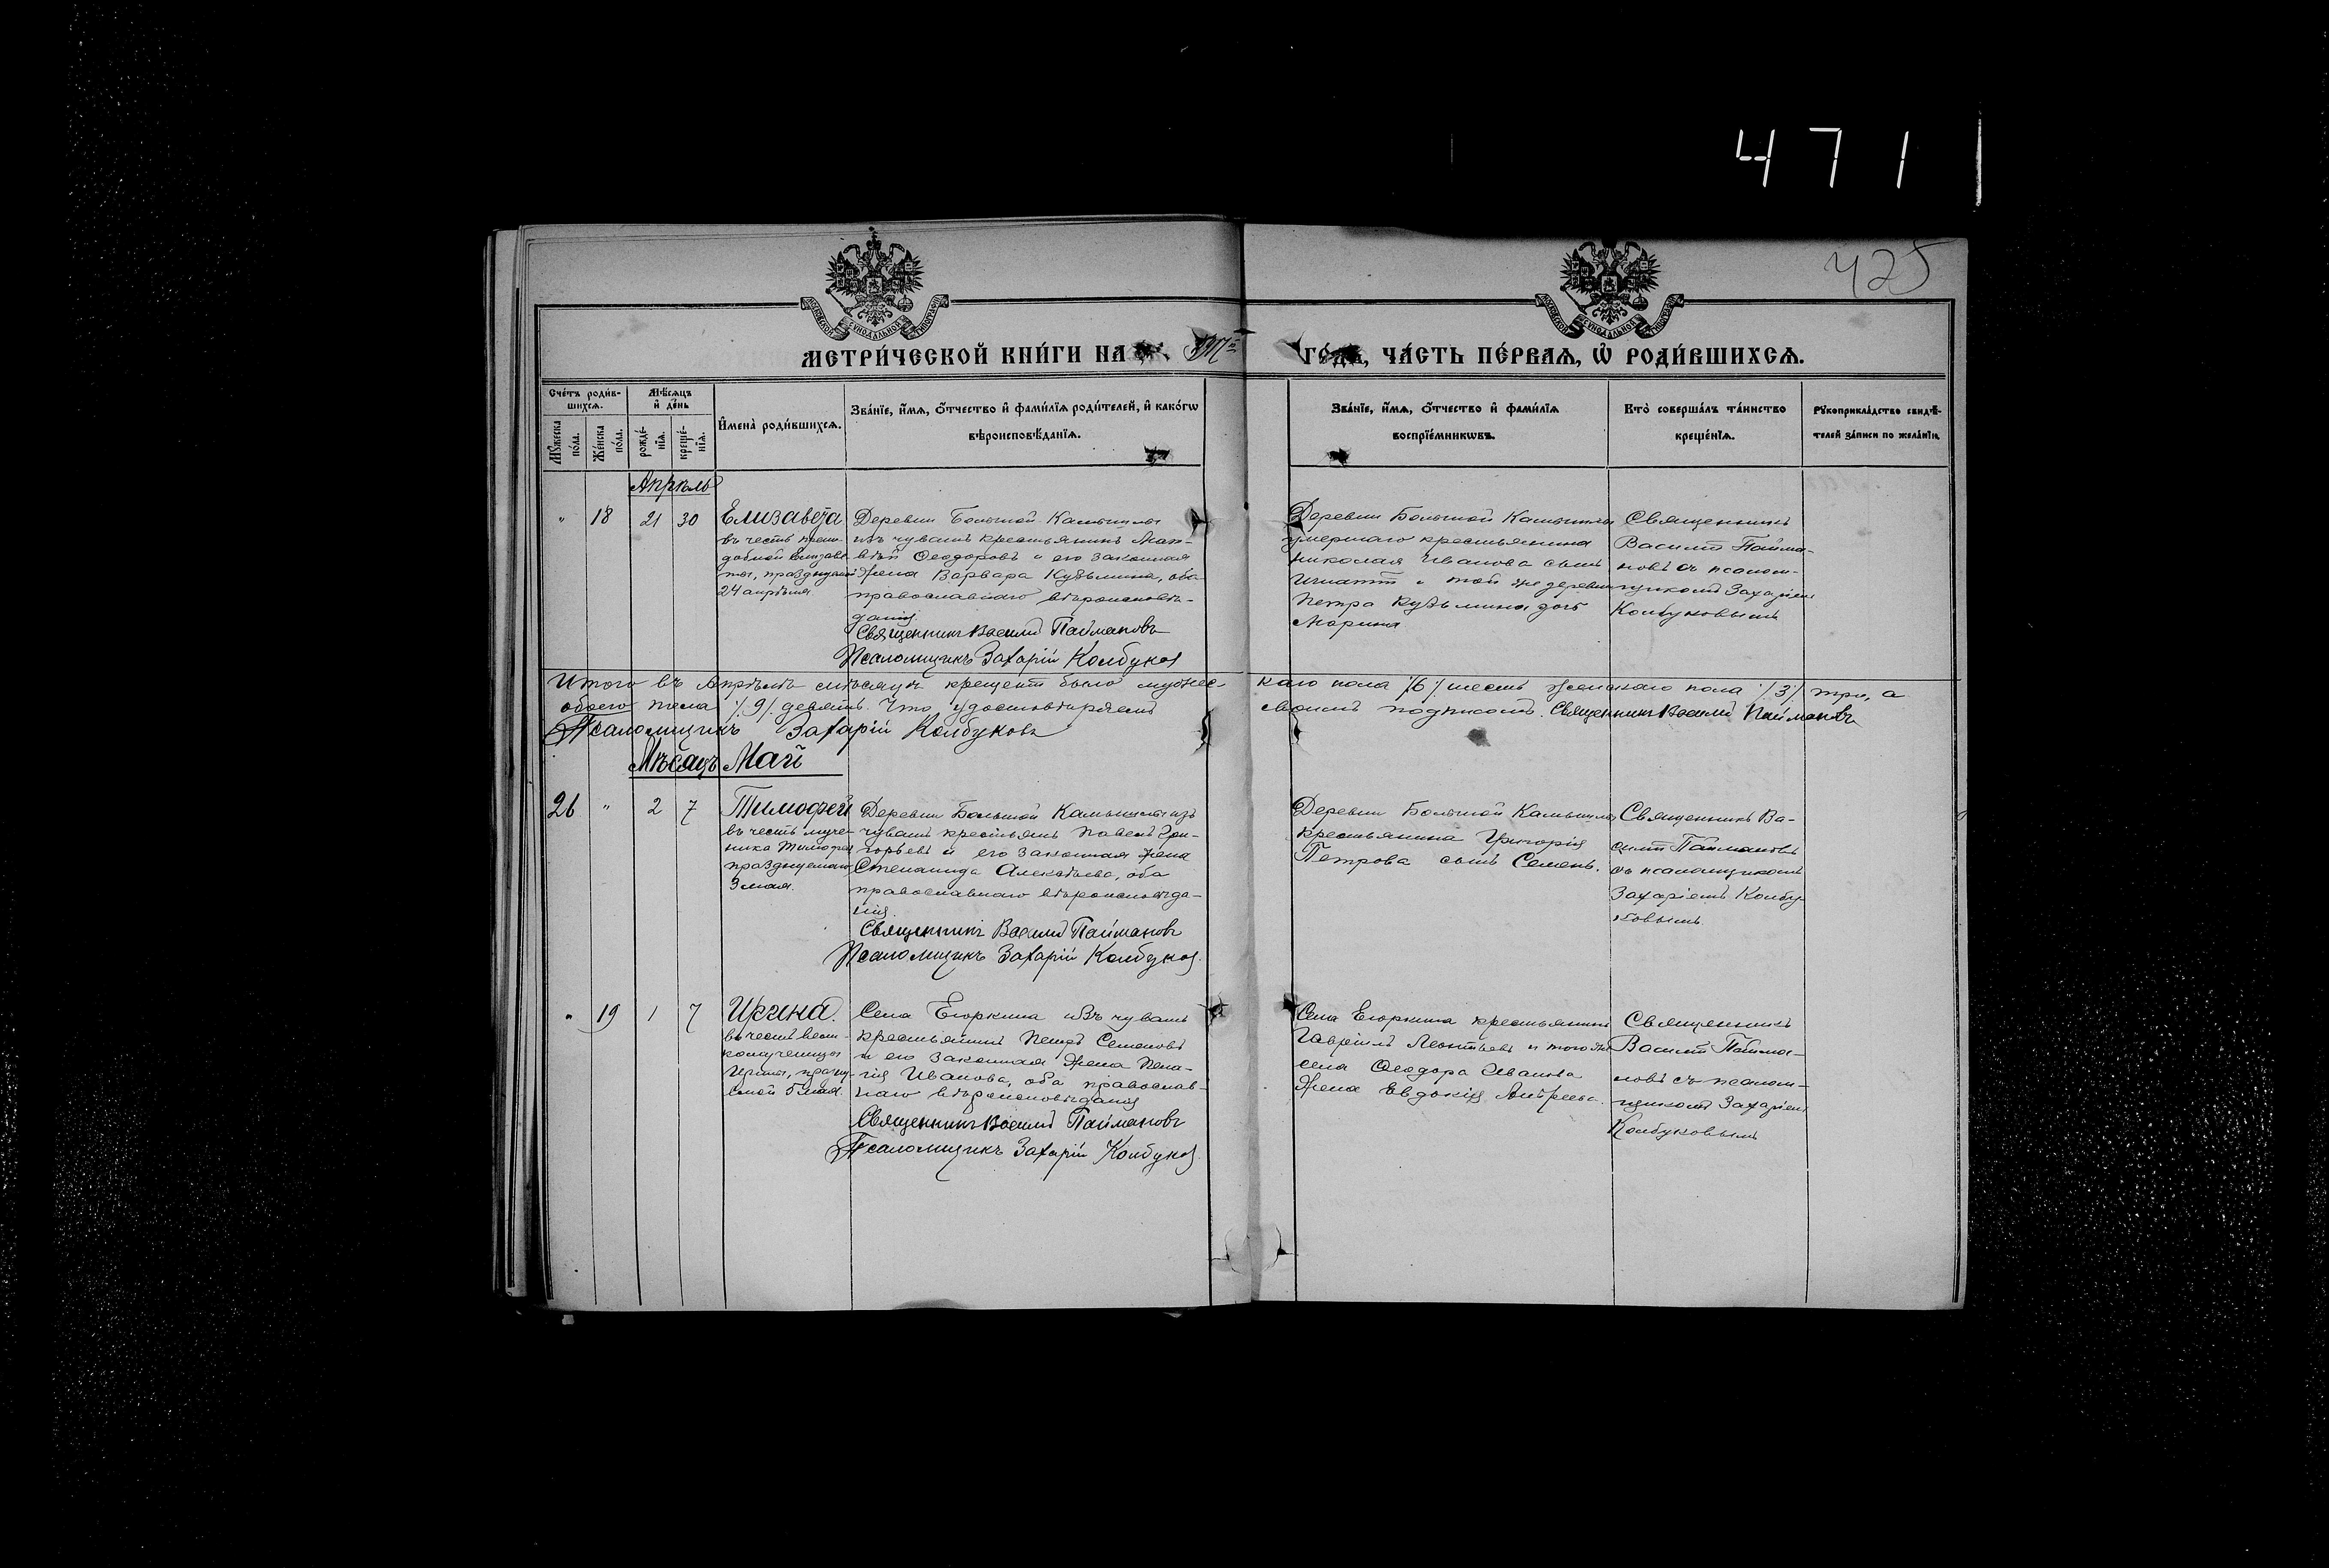 471
425
МЕТРИ́ЧЕСКОЙ КНИ́ГИ НА ГО́ДЪ, ЧА́СТЬ ПЕ́РВАЯ, Ѿ РОДИ́ВШИХСЯ.
Сче́тъ роди́в-
шихся.
Мѣ́сяцъ
и҆ де́нь
Мꙋ́жеска
по́ла.
Же́нска
по́ла.
рожде́-
нїѧ.
креще́-
нїѧ.
И҆мена̀ роди́вшихсѧ.
Зва́нїе, и҆́мѧ, ѻ҆́тчество и҆ фами́лїѧ роди́телей, и҆ како́гѡ
вѣроисповѣ́данїѧ.
Зва́нїе, и҆́мѧ, ѻ҆́тчество и҆ фами́лїѧ
воспрїе́мникѡвъ.
Кто̀ соверша́лъ та́инство
креще́нїѧ.
Рꙋкоприкла́дство свидѣ́-
телей за́писи по жела́нїю.
Апрѣль
" 18 21 30
Елизавета
въ честь препо-
добной Елизаве-
ты, празднуемой
24 апрѣля
Деревни Большой Камышлы
изъ чувашъ крестьянинъ Мат-
вѣй Ѳеодоровъ и его законная
жена Варвара Кузьмина, оба
православнаго вѣроисповѣ-
данія.
Священникъ Василій Паймановъ
Псаломщикъ Захарій Колбуковъ
Деревни Большой Камышлы
умершаго крестьянина
Николая Иванова сынъ
Игнатій и той же деревни
Петра Кузьмина дочь
Марина
Священникъ
Василій Пайма-
новъ съ псалом-
щикомъ Захаріемъ
Колбуковымъ
Итого въ Апрѣлѣ мѣсяцѣ крещенъ было мужес-каго пола /6/ шесть женскаго пола /3/ три, а
обоего пола /9/ девять. Что удостовѣряемъ своимъ подписомъ. Священникъ Василій Паймановъ
Псаломщикъ Захарій Колбуковъ
Мѣсяцъ Май
26 " 2 7
Тимофей
въ честь муче-
ника Тимофея
празднуемаго
3 мая.
Деревни Большой Камышлы изъ
чувашъ крестьянъ Павелъ Гри-
горьевъ и его законная жена
Степанида Алексѣева, оба
православнаго вѣроисповѣда-
нія.
Священникъ Василій Паймановъ
Псаломщикъ Захарій Колбуковъ
Деревни Большой Камышлы
крестьянина Григорія
Петрова сынъ Семенъ.
Священникъ Ва-
силій Паймановъ
съ псаломщикомъ
Захаріемъ Колбу-
ковымъ.
" 19 1 7
Ирина.
въ честь вели-
комученицы
Ирины, празну-
емой 5 мая.
Села Егоркина изъ чувашъ
крестьянинъ Петръ Семеновъ
и его законная жена Пела-
гія Иванова, оба православ-
наго вѣроисповѣданія
Священникъ Василій Паймановъ
Псаломщикъ Захарій Колбуковъ
Села Егоркина крестьянинъ
Гавріилъ Леонтьевъ и того же
села Ѳеодора Иванова
жена Евдокія Андреева.
Священникъ
Василій Пайма-
новъ съ псалом-
щикомъ Захаріемъ
Колбуковымъ